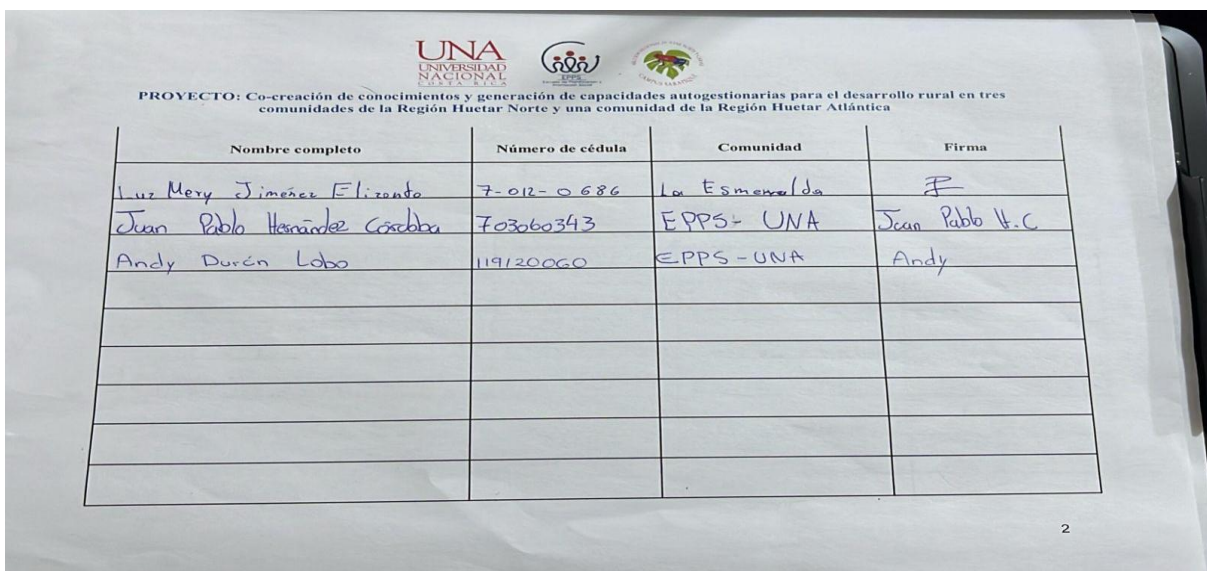 UNA
UNIVERSIDAD
NACIONAL
COSTA RICA
EPPS
CAMPUS SARAPIQUÍ
PROYECTO: Co-creación de conocimientos y generación de capacidades autogestionarias para el desarrollo rural en tres
comunidades de la Región Huetar Norte y una comunidad de la Región Huetar Atlántica
Nombre completo Número de cédula Comunidad Firma
Luz Mery Jiménez Elizondo 7-012-0686 La Esmeralda
Juan Pablo Hernández Córdoba 703060343 EPPS- UNA Juan Pablo H.C
Andy Durán Lobo 119120060 EPPS-UNA Andy
2